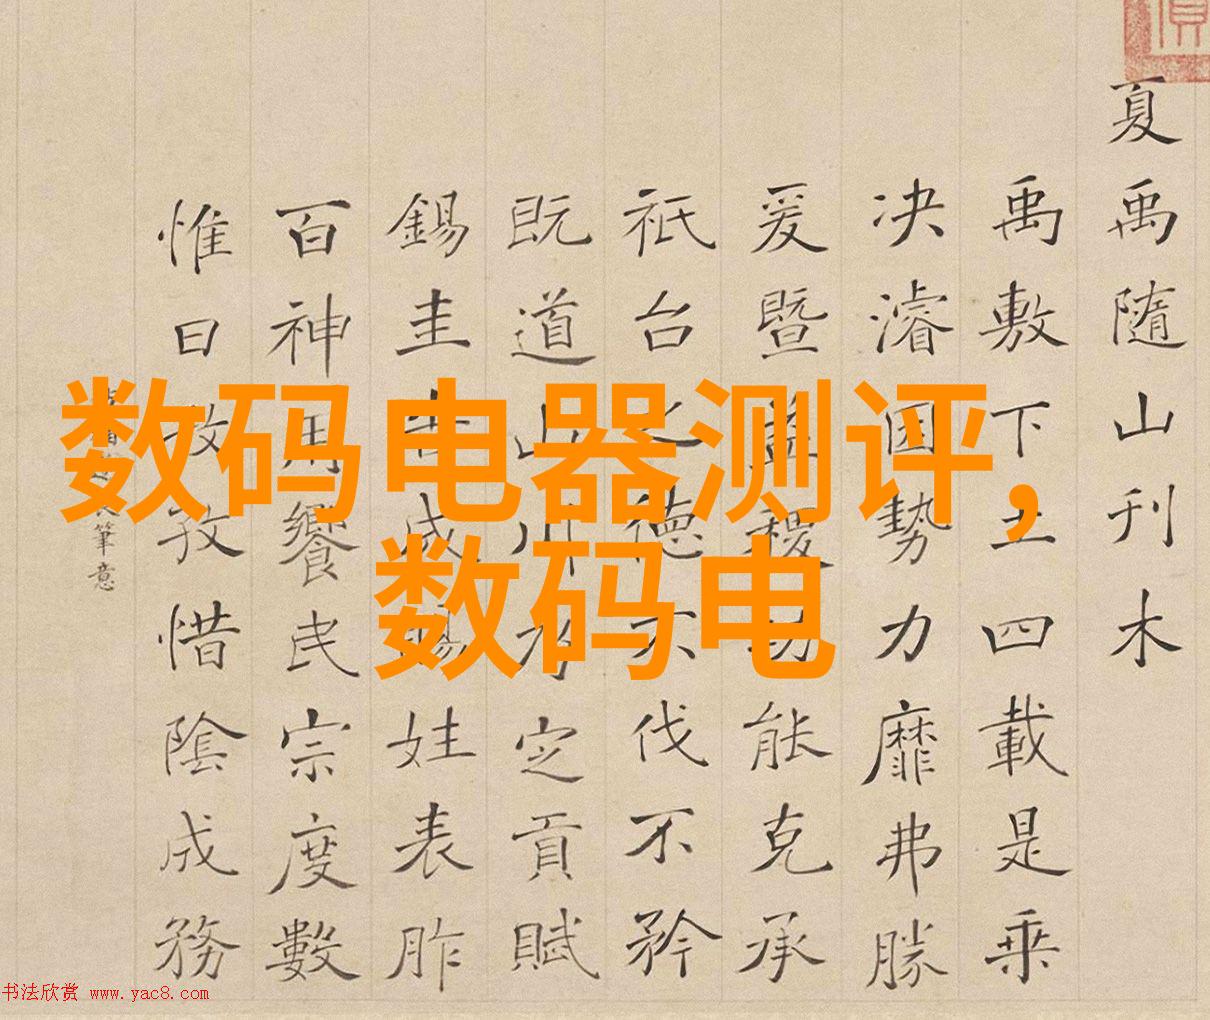 夏禹隨山刊木
禹敷下土四載是乘
决濬因勢力靡弗勝
爰暨益稷功能克承
祇台之德不伐不矜
既道山川定貢賦
錫圭告成姓表胙
百神用饗民宗度數
惟日孜孜惜陰成務
筆意
数码电器测评，
数码电
书法欣赏 www.yac8.com